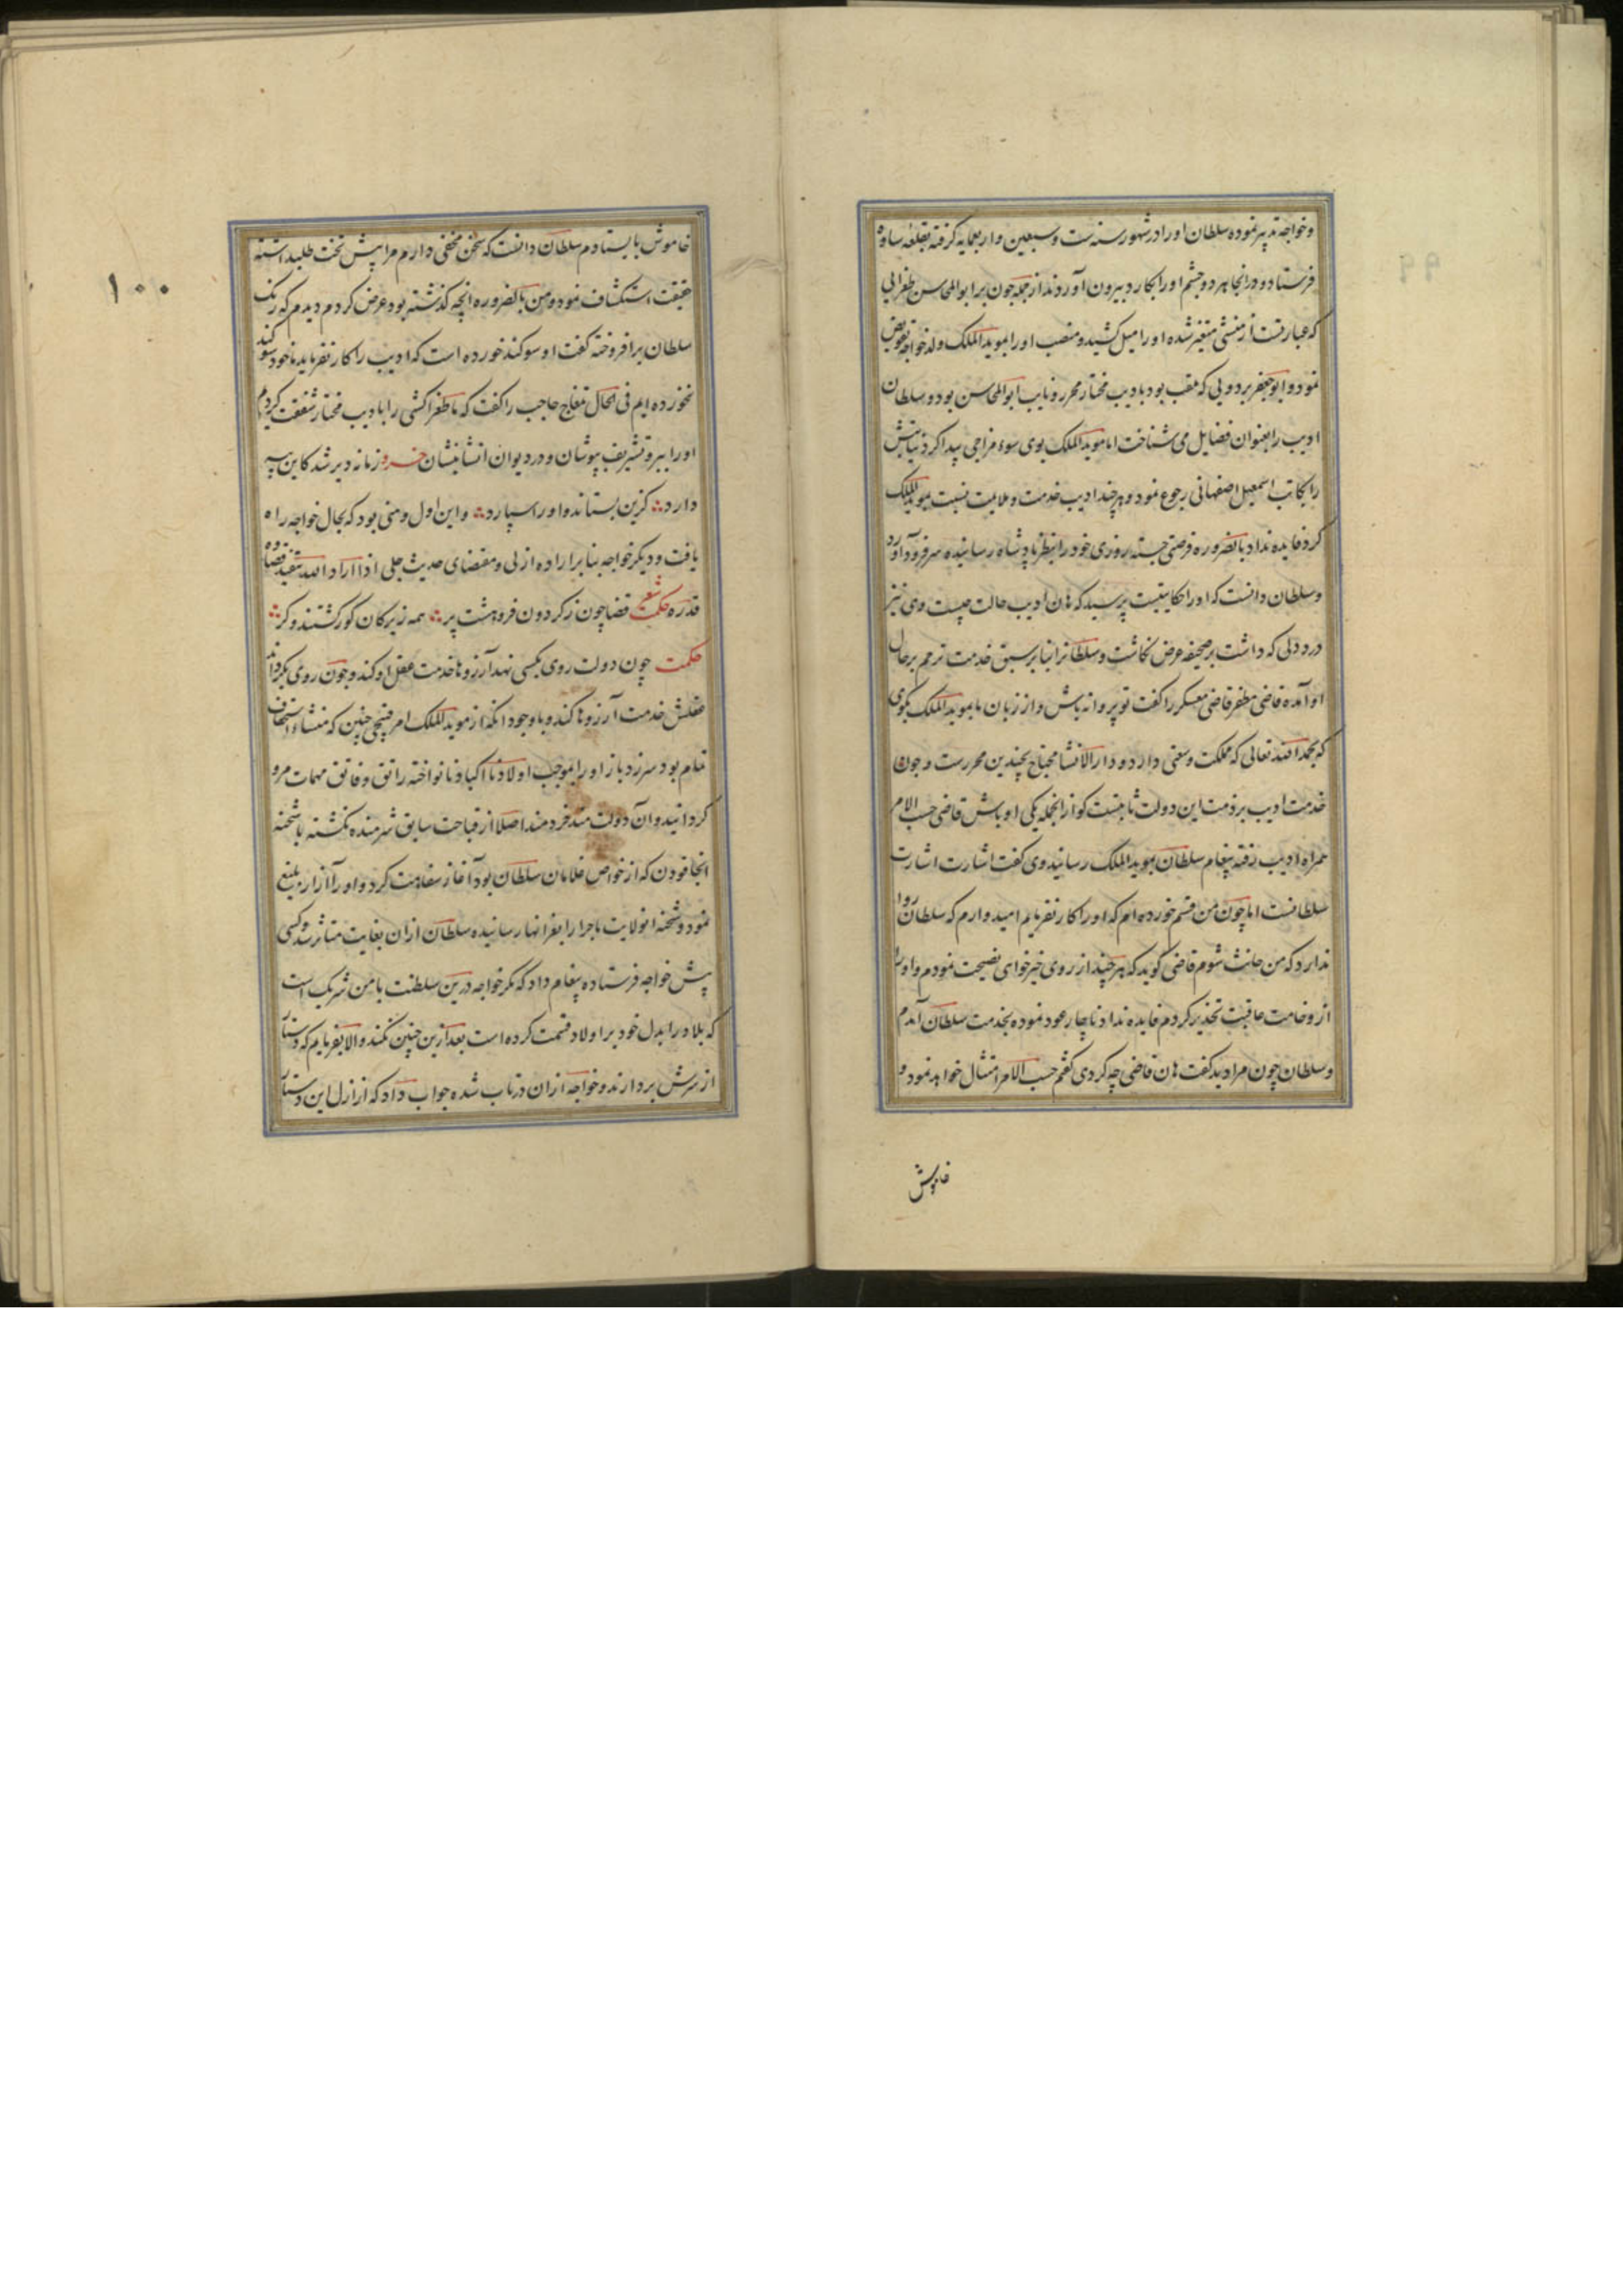 وخواجه تدبیر نموده سلطان اورا در شهور سنه ست وسبعین واربعمایه گرفته بقلعه ساوه
فرستاد ودر انجا هر دو چشم اورا بکارد بیرون آوردند از جمله چون برابوالمحاسن طغرایی
که عبارتست از منشی متغیر شده اورا میل کشید ومنصب اورا بموید الملک ولد خواجه تفویض
نمود وابوجعفر بردویی که ملقب بود بادیب مختار محرر ونایب ابوالمحاسن بود وسلطان
ادیب را بعنوان فضایل می شناخت اما موید الملک بوی سوء مزاجی پیدا کرد نیابتش
را بکاتب اسمعیل اصفهانی رجوع نمود وهرچند ادیب خدمت وملایمت نسبت بموید الملک
کرد فایده نداد بالضروره فرصتی جسته روزی خود را بنظر پادشاه رسانیده سر فرود آورد
وسلطان دانست که اورا حکایتیست پرسید که هان ادیب حالت چیست وی نیز
درد دلی که داشت بر صحیفه عرض نگاشت وسلطانرا بنابر سبق خدمت ترحم بر حال
او آمده قاضی مظفر قاضی معسکر را گفت تو پروانه باش واز زبان ما بموید الملک بگوی
که بحمد الله تعالی که مملکت وسعتی دارد ودارالانشا محتاج بچندین محررست وچون
خدمت ادیب بر ذمت این دولت ثابتست گو از انجمله یکی او باش قاضی حسب الامر
همراه ادیب رفته پیغام سلطان بموید الملک رسانید وی گفت اشارت اشارت
سلطانست اما چون من قسم خورده ام که اورا کار نفرمایم امیدوارم که سلطان روا
ندارد که من حانث شوم قاضی گوید که هرچند از روی خیرخواهی نصیحت نمودم واورا
از وخامت عاقبت تحذیر کردم فایده نداد ناچار عود نموده بخدمت سلطان آمدم
وسلطان چون مرا دید گفت هان قاضی چه کردی گفتم حسب الامر امتثال خواهد نمود و
خاموش
۱۰۰
خاموش بایستادم سلطان دانست که سخن مخفی دارم مرا پیش تخت طلبید استه
حقیقت استکشاف نمود ومن بالضروره انچه گذشته بود عرض کردم دیدم که رنک
سلطان برافروخته گفت او سوکند خورده است که ادیب را کار نفرماید ما خود سوکند
نخورده ایم فی الحال تغلج حاجب را گفت که ما طغراکشی را بادیب مختار شفقت کردیم
اورا ببر وتشریف بپوشان ودر دیوان انشا بنشان خسرو زمانه دیر شد کاین پیسه
دارد کزین بستاند واورا سپارد واین اول وهنی بود که بحال خواجه راه
یافت ودیگر خواجه بنابر اراده ازلی ومقتضای حدیث جلی اذا اراد الله تنفیذ قضاءه
قدره حکمت شعر قضا چون ز گردون فروهشت پر همه زیرکان کور گشتند وکر
حکمت چون دولت روی بکسی نهد آرزوها خدمت عقل او کند وچون روی بگرداند
عقلش خدمت آرزوها کند وباوجود انکه از موید الملک امر قبیحی چنین که منشاء استخفاف
تمام بود سر زد باز اورا بموجب اولادنا اکبادنا نواخته راتق وفاتق مهمات مرو
گردانید وآن دولتمند خردمند اصلا از قباحت سابق شرمنده نگشته با شحنه
انجا قودن که از خواص غلامان سلطان بود آغاز سفاهت کرد واورا آزار بلیغ
نمود وشحنه انولایت ماجرا را بعز انها رسانیده سلطان ازان بغایت متاثر شد وکسی
پیش خواجه فرستاده پیغام داد که مگر خواجه درین سلطنت با من شریک است
که بلاد را بدل خود بر اولاد قسمت کرده است بعد ازین چنین نکند والا بفرمایم که دستار
از سرش بردارند وخواجه ازان درتاب شده جواب داد که از ازل این دستار